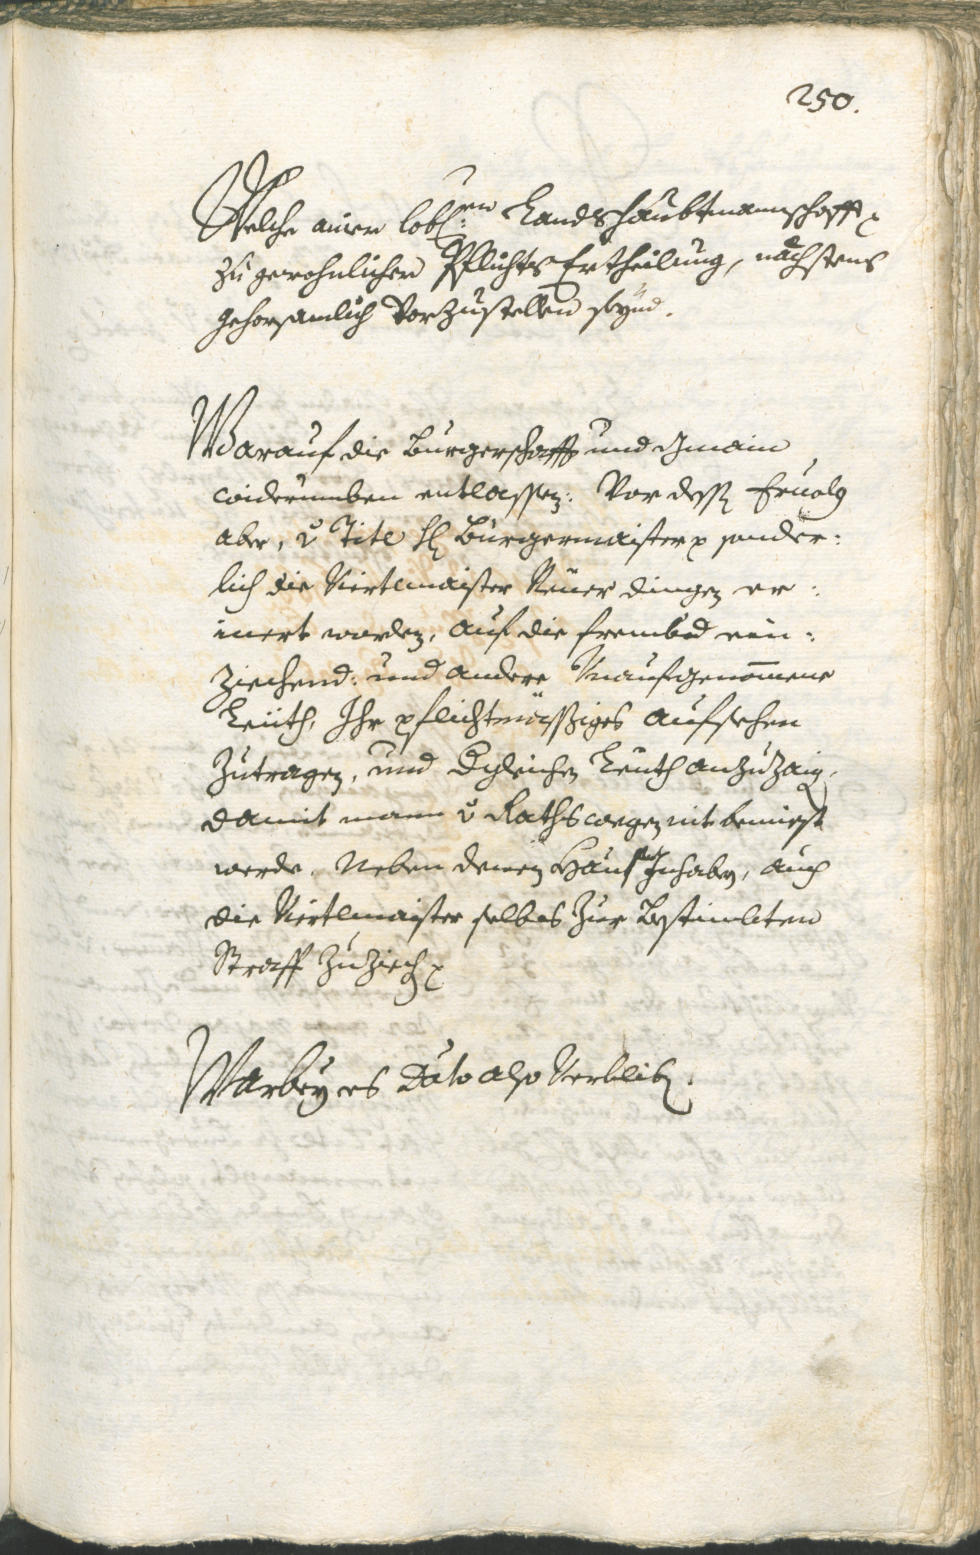 250.
Welche ainer lobl:en Landtshaubtmannschafft
zu gewohnlicher Pflichts Ertheilung, nächstens
gehorsamlich vorzustellen seynd.
Warauf die Burgerschafft und Gmain
widerumben entlassen: Vor dessen Ervolg
aber, v Titl H Burgermaister sonder:
lich die Viertlmaister Neüer dingen er:
inert worden, auf die frembd ein:
ziechend: und andere Unaufgenomene
Leüth, Ihr pflichtmässiges aufsehen
zutragen, und dgleichen Leüth anzuzaigen,
damit mann v Rathswegen nit bemiest
werde. Neben denen Hauß Inhabern, auch
die Viertlmaister selbes zur bestimbten
Straff zuziechen
Warbey es Dato also Verbliben.